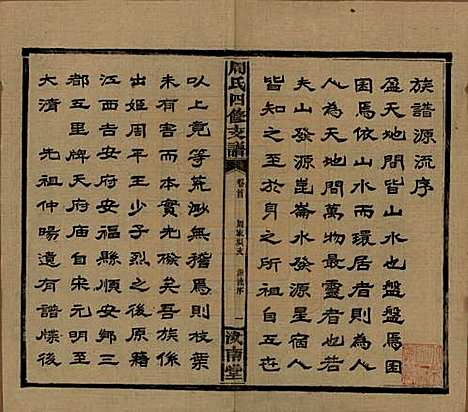 族譜源流序
盈天地間皆山水也盤盤焉困
困焉依山水而環居者人也然
人為天地間萬物最靈者也而
夫山發源崑崙水發源星宿人
皆知之至於身之所自出五
周氏四修支譜
卷首
源流序
一
汝南堂
以上竟等荒渺無稽焉則枝葉
未有害本實先撥矣吾族係
出姬周平王少子烈之後原籍
江西吉安府安福縣順安鄉三
都五里牌廟前自宋元明至
大清 先祖仲暘遺有譜牒後